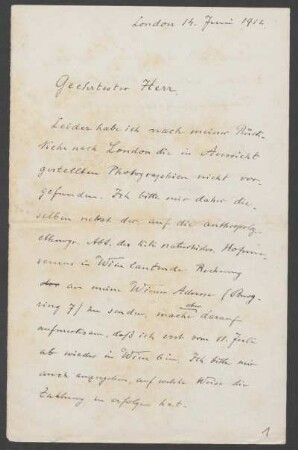 London 14. Juni 1912
Geehrtester Herr
Leider habe ich nach meiner Rück-
kehr nach London die in Aussicht
gestellten Photographien nicht vor-
gefunden. Ich bitte mir daher die-
selben nebst der auf die anthropolg.
ethnogr. Abt. des k.k. naturhistor. Hofmu-
seums in Wien lautende Rechnung
an meine Wiener Adresse (Burg-
ring 7) zu senden, mache aber darauf
aufmerksam, daß ich erst vom 11. Juli
ab wieder in Wien bin. Ich bitte mir
auch anzugeben, auf welche Weise die
Zahlung zu erfolgen hat.
1